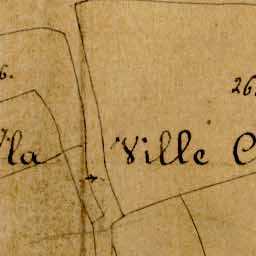 6.
26.
la
Ville C